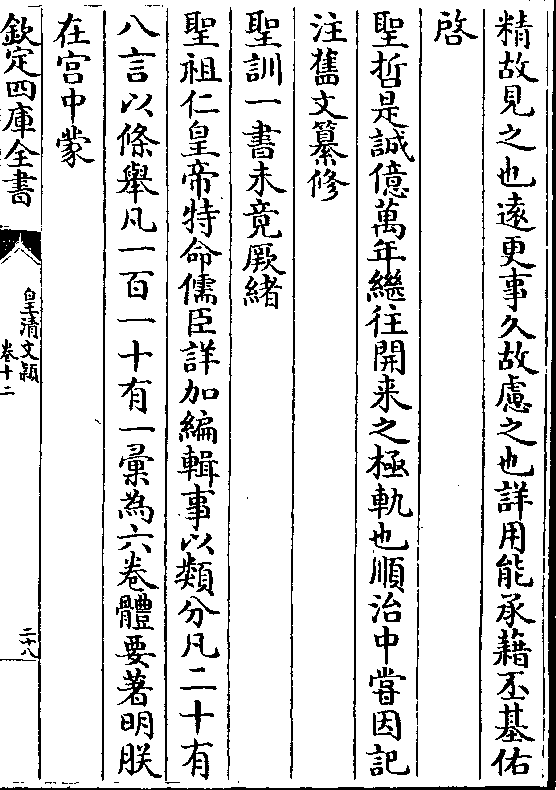 精故見之也遠更事久故慮之也詳用能承藉丕基佑
啓
聖哲是誠億萬年繼往開来之極軌也順治中嘗因記
注舊文纂修
聖訓一書未竟厥緒
聖祖仁皇帝特命儒臣詳加編輯事以類分凡二十有
八言以條舉凡一百一十有一彚為六卷體要著明朕
在宫中蒙
欽定四庫全書
皇清文穎
卷十二
二十八